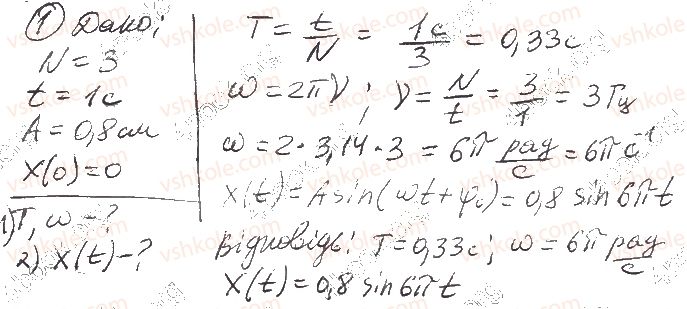 ① Дано:
N = 3
t = 1c
A = 0,8 см
X(0) = 0
1) T, ω - ?
2) X(t) - ?
T = t/N = 1c/3 = 0,33c
ω = 2πν; ν = N/t = 3/1 = 3 Гц
ω = 2 · 3,14 · 3 = 6π рад/c = 6π c⁻¹
X(t) = A sin(ωt + φ₀) = 0,8 sin 6πt
Відповідь: T = 0,33c; ω = 6π рад/c
X(t) = 0,8 sin 6πt